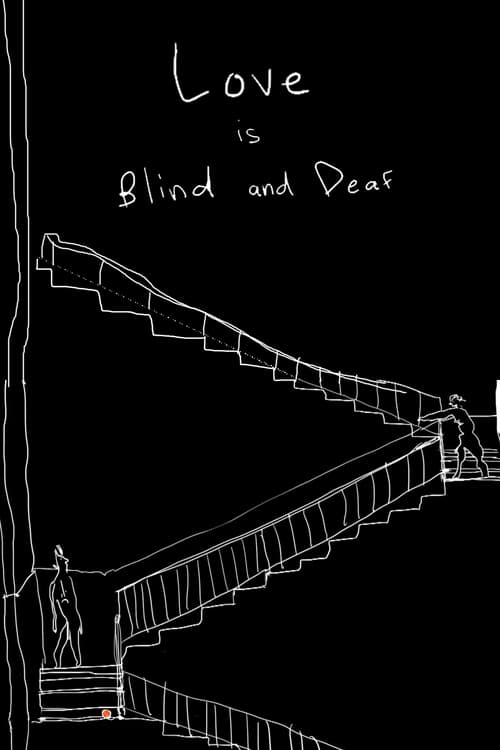 Love
is
Blind and Deaf